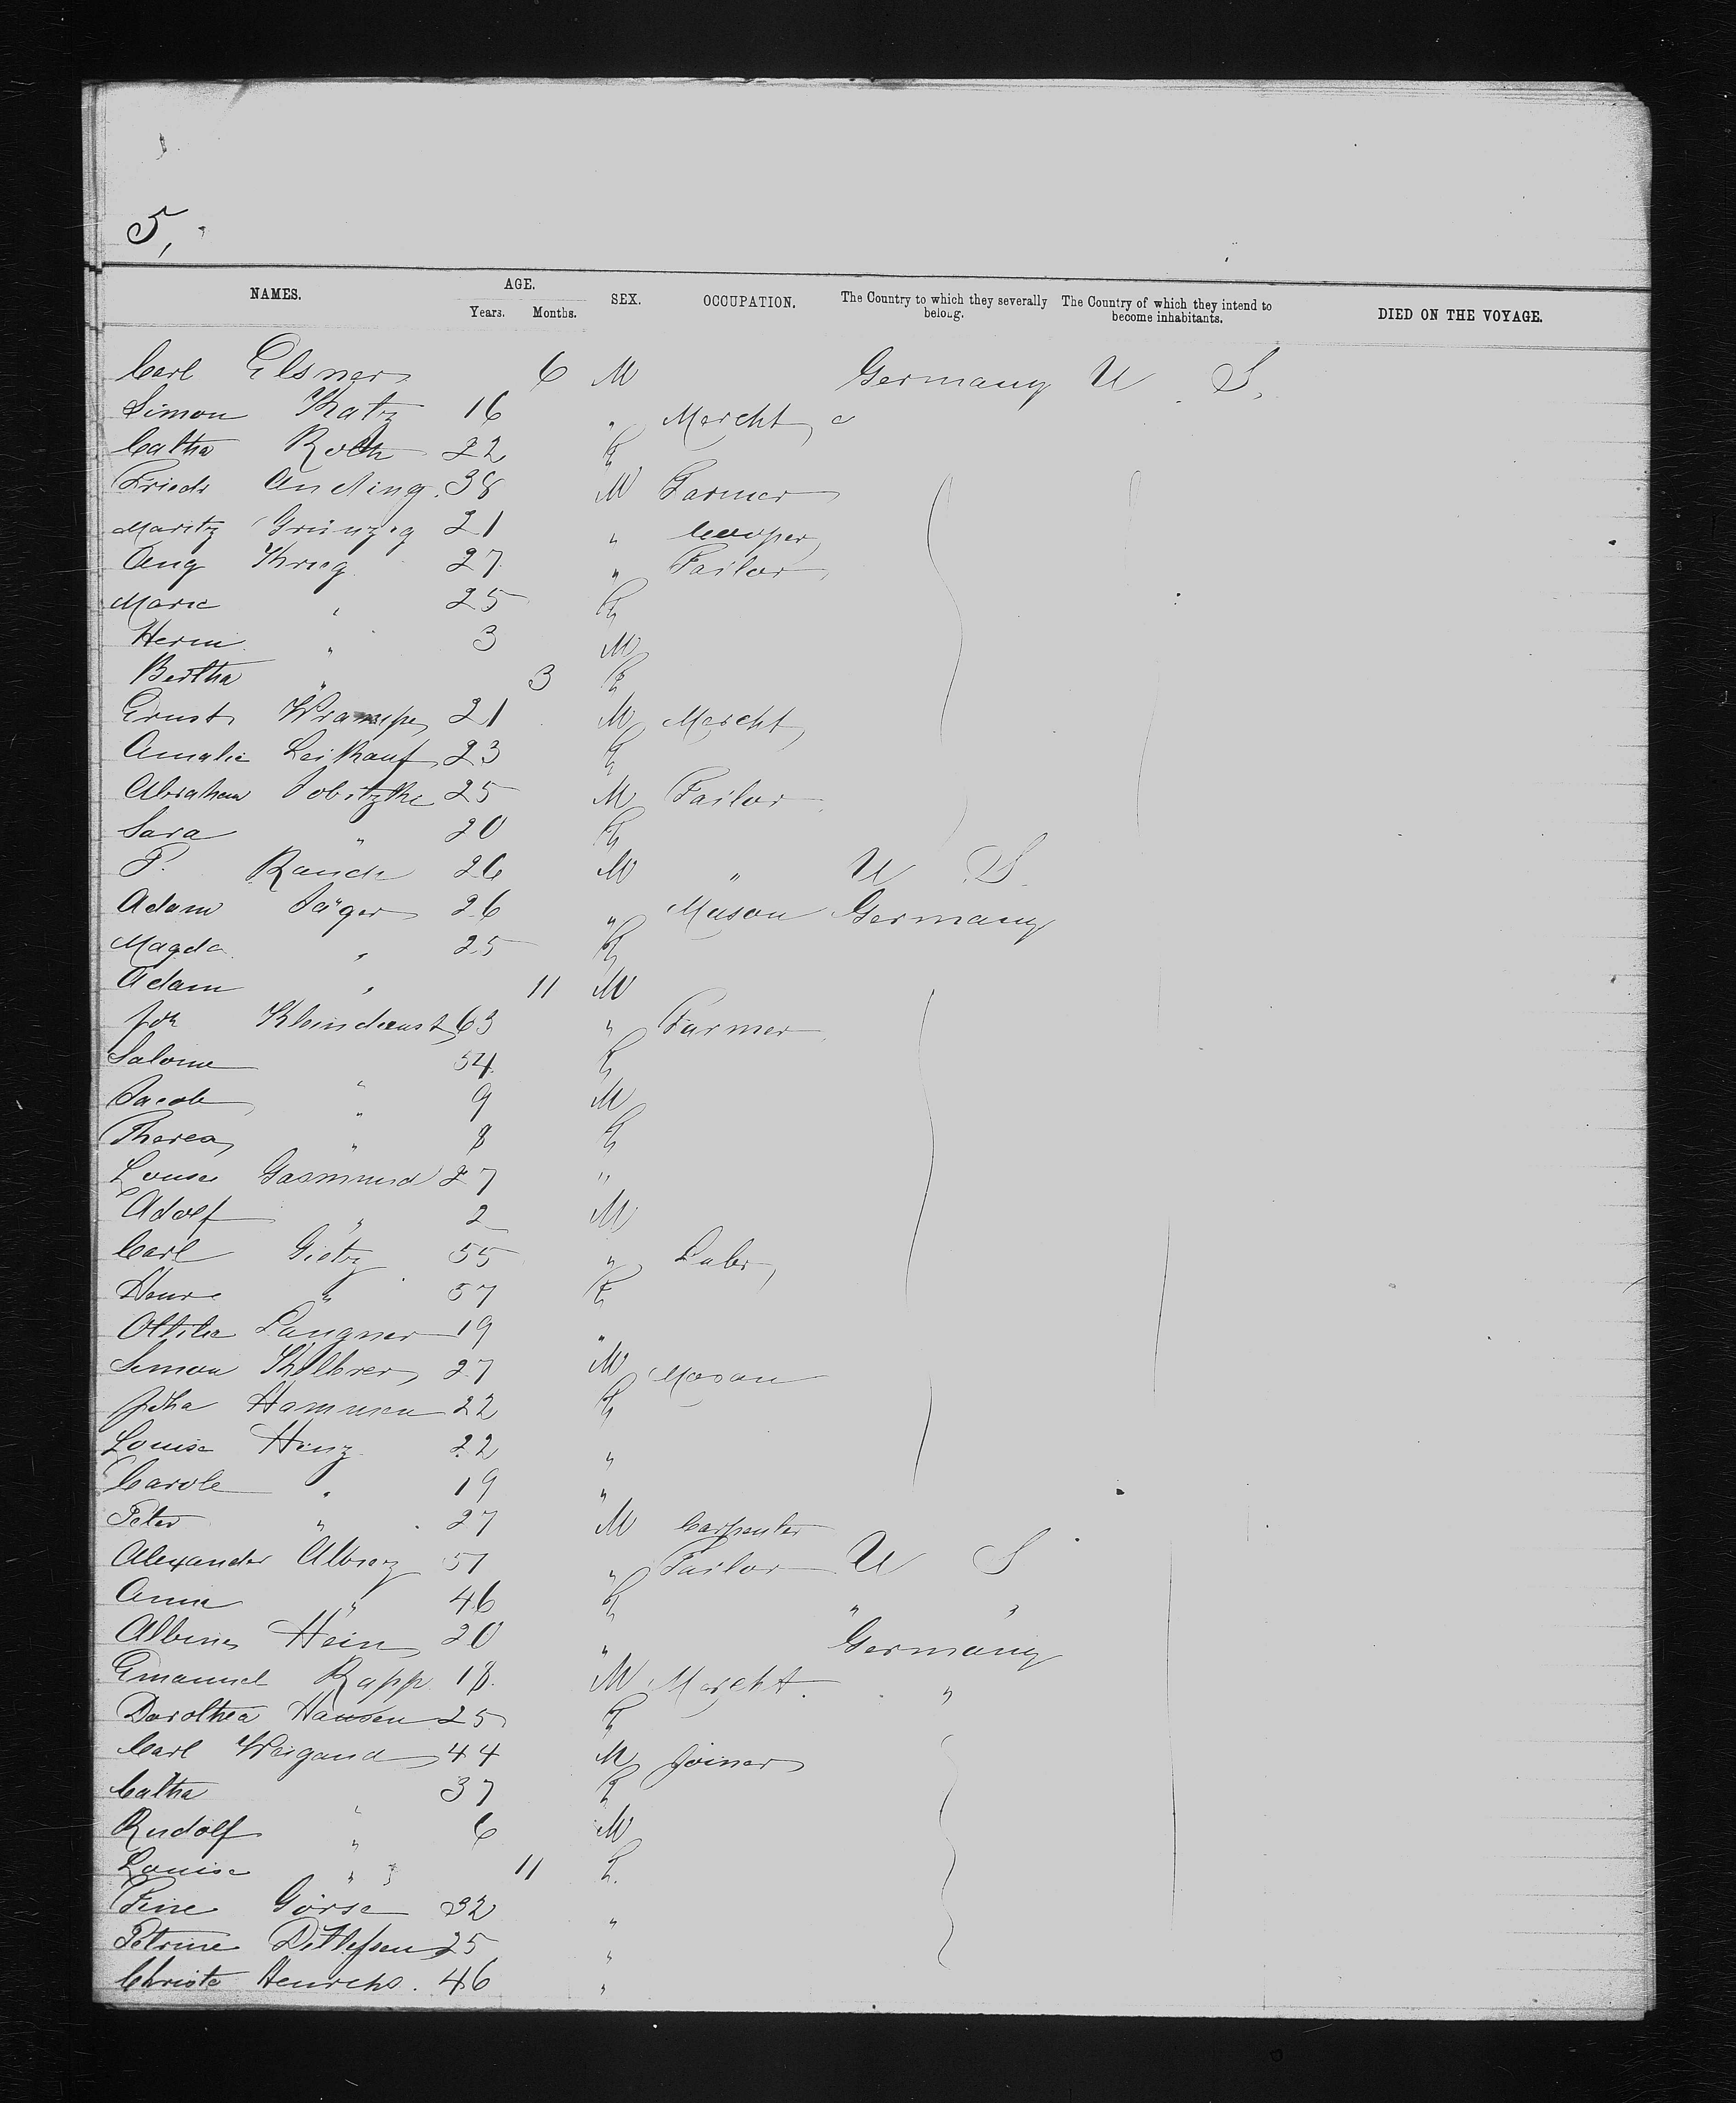 5,
NAMES. AGE. SEX. OCCUPATION. The Country to which they severally belong. The Country of which they intend to become inhabitants. DIED ON THE VOYAGE.
Years. Months.
Carl Elsner 6 M Germany U S.
Simon Katz 16 " Mercht "
Catha Roth 22 F
Friedr Anding. 38 M Farmer
Moritz Grünzig 21 " Cooper
Aug Krug 27 " Tailor
Marie " 25 F
Herm. " 3 M
Bertha " 3 F
Ernst 21 M Mercht
Amalie Leikauf 23 F
Abraham 25 M Tailor
Sara " 20 F
F. Rauch 26 M " U S.
Adam Jäger 26 " Mason Germany
Magda " 25 F
Adam " 11 M
Joh Kleindienst 63 " Farmer
Salome " 54 F
Jacob " 9 M
Theres " 8 F
Louise Gasmund 27 "
Adolf " 2 M
Carl Gietz 55 " Labr,
Henre " 57 F
Ottilie Langner 19 "
Simon 27 M Mason
Joha Hammen 22 F
Louise Hinz 22 "
Carole " 19 "
Peter " 27 M Carpenter
Alexander 51 " Tailor U S
Anna " 46 F " "
Albine Hein 20 " Germany
Emanuel Rapp 18. M Mercht. "
Dorothea Hansen 25 F
Carl Weigand 44 M Joiner
Catha " 37 F
Rudolf " 6 M
Louise " 11 F.
Fine Görse 32 "
Petrine Detlefsen 25 "
Christe Henrichs. 46 "